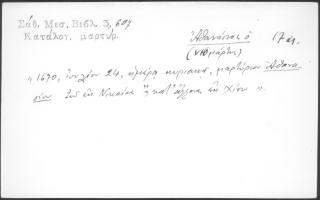 Σάθ. Μεσ. Βιβλ. 3, 604
Κατάλογ. μαρτυρ.
Ἀθανάσιος ὁ 17 αι.
(νεομάρτυς)
" 1670, ἰουλίου 24, ἡμέρᾳ κυριακῇ, μαρτύριον Ἀθανα
σίου τοῦ ἐκ Νικαίας ἢ κατ' ἄλλους ἐκ Χίου ".